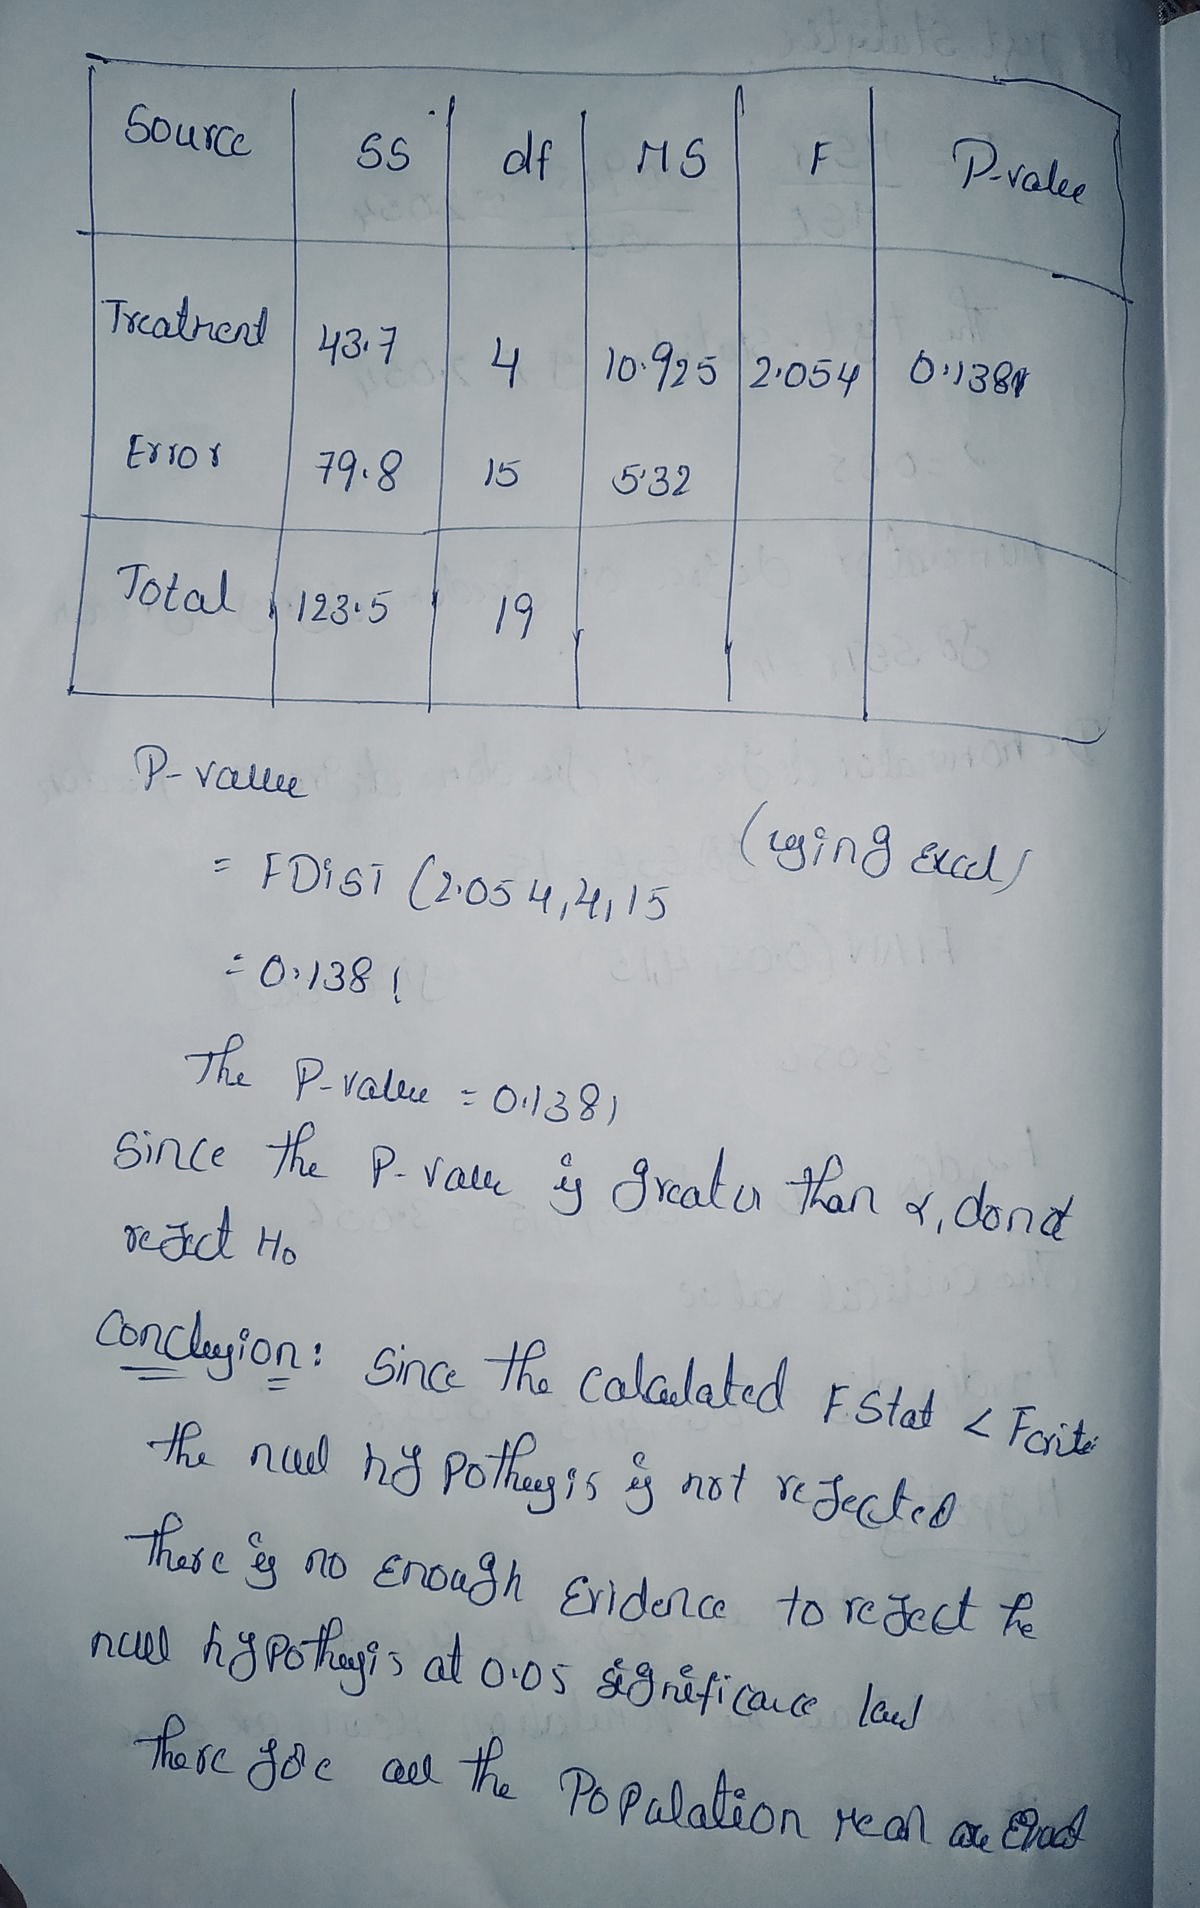 Source SS df MS F P-value
Treatment 43.7 4 10.925 2.054 0.1381
Error 79.8 15 5.32
Total 123.5 19
P-value
(using Excel)
= FDIST (2.054,4,15
= 0.1381
The P-value = 0.1381
Since the P-value is greater than α, do not
reject H0
Conclusion: Since the calculated F Stat < F crit
the null hypothesis is not rejected
there is no Enough Evidence to reject the
null hypothesis at 0.05 significance level
there fore all the Population mean are